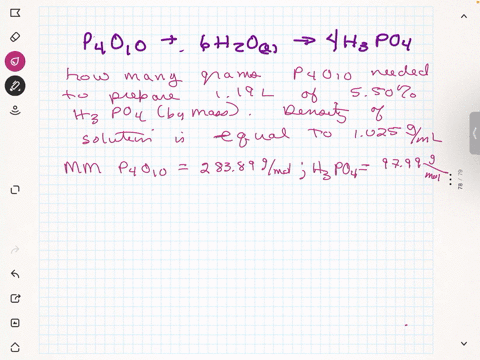 P4O10 + 6H2O(l) → 4H3PO4
how many grams P4O10 needed
to prepare 1.19 L of 5.50%
H3PO4 (by mass). Density of
solution is equal to 1.025 g/mL
MM P4O10 = 283.89 g/mol ; H3PO4 = 97.99 g/mol
78 / 79